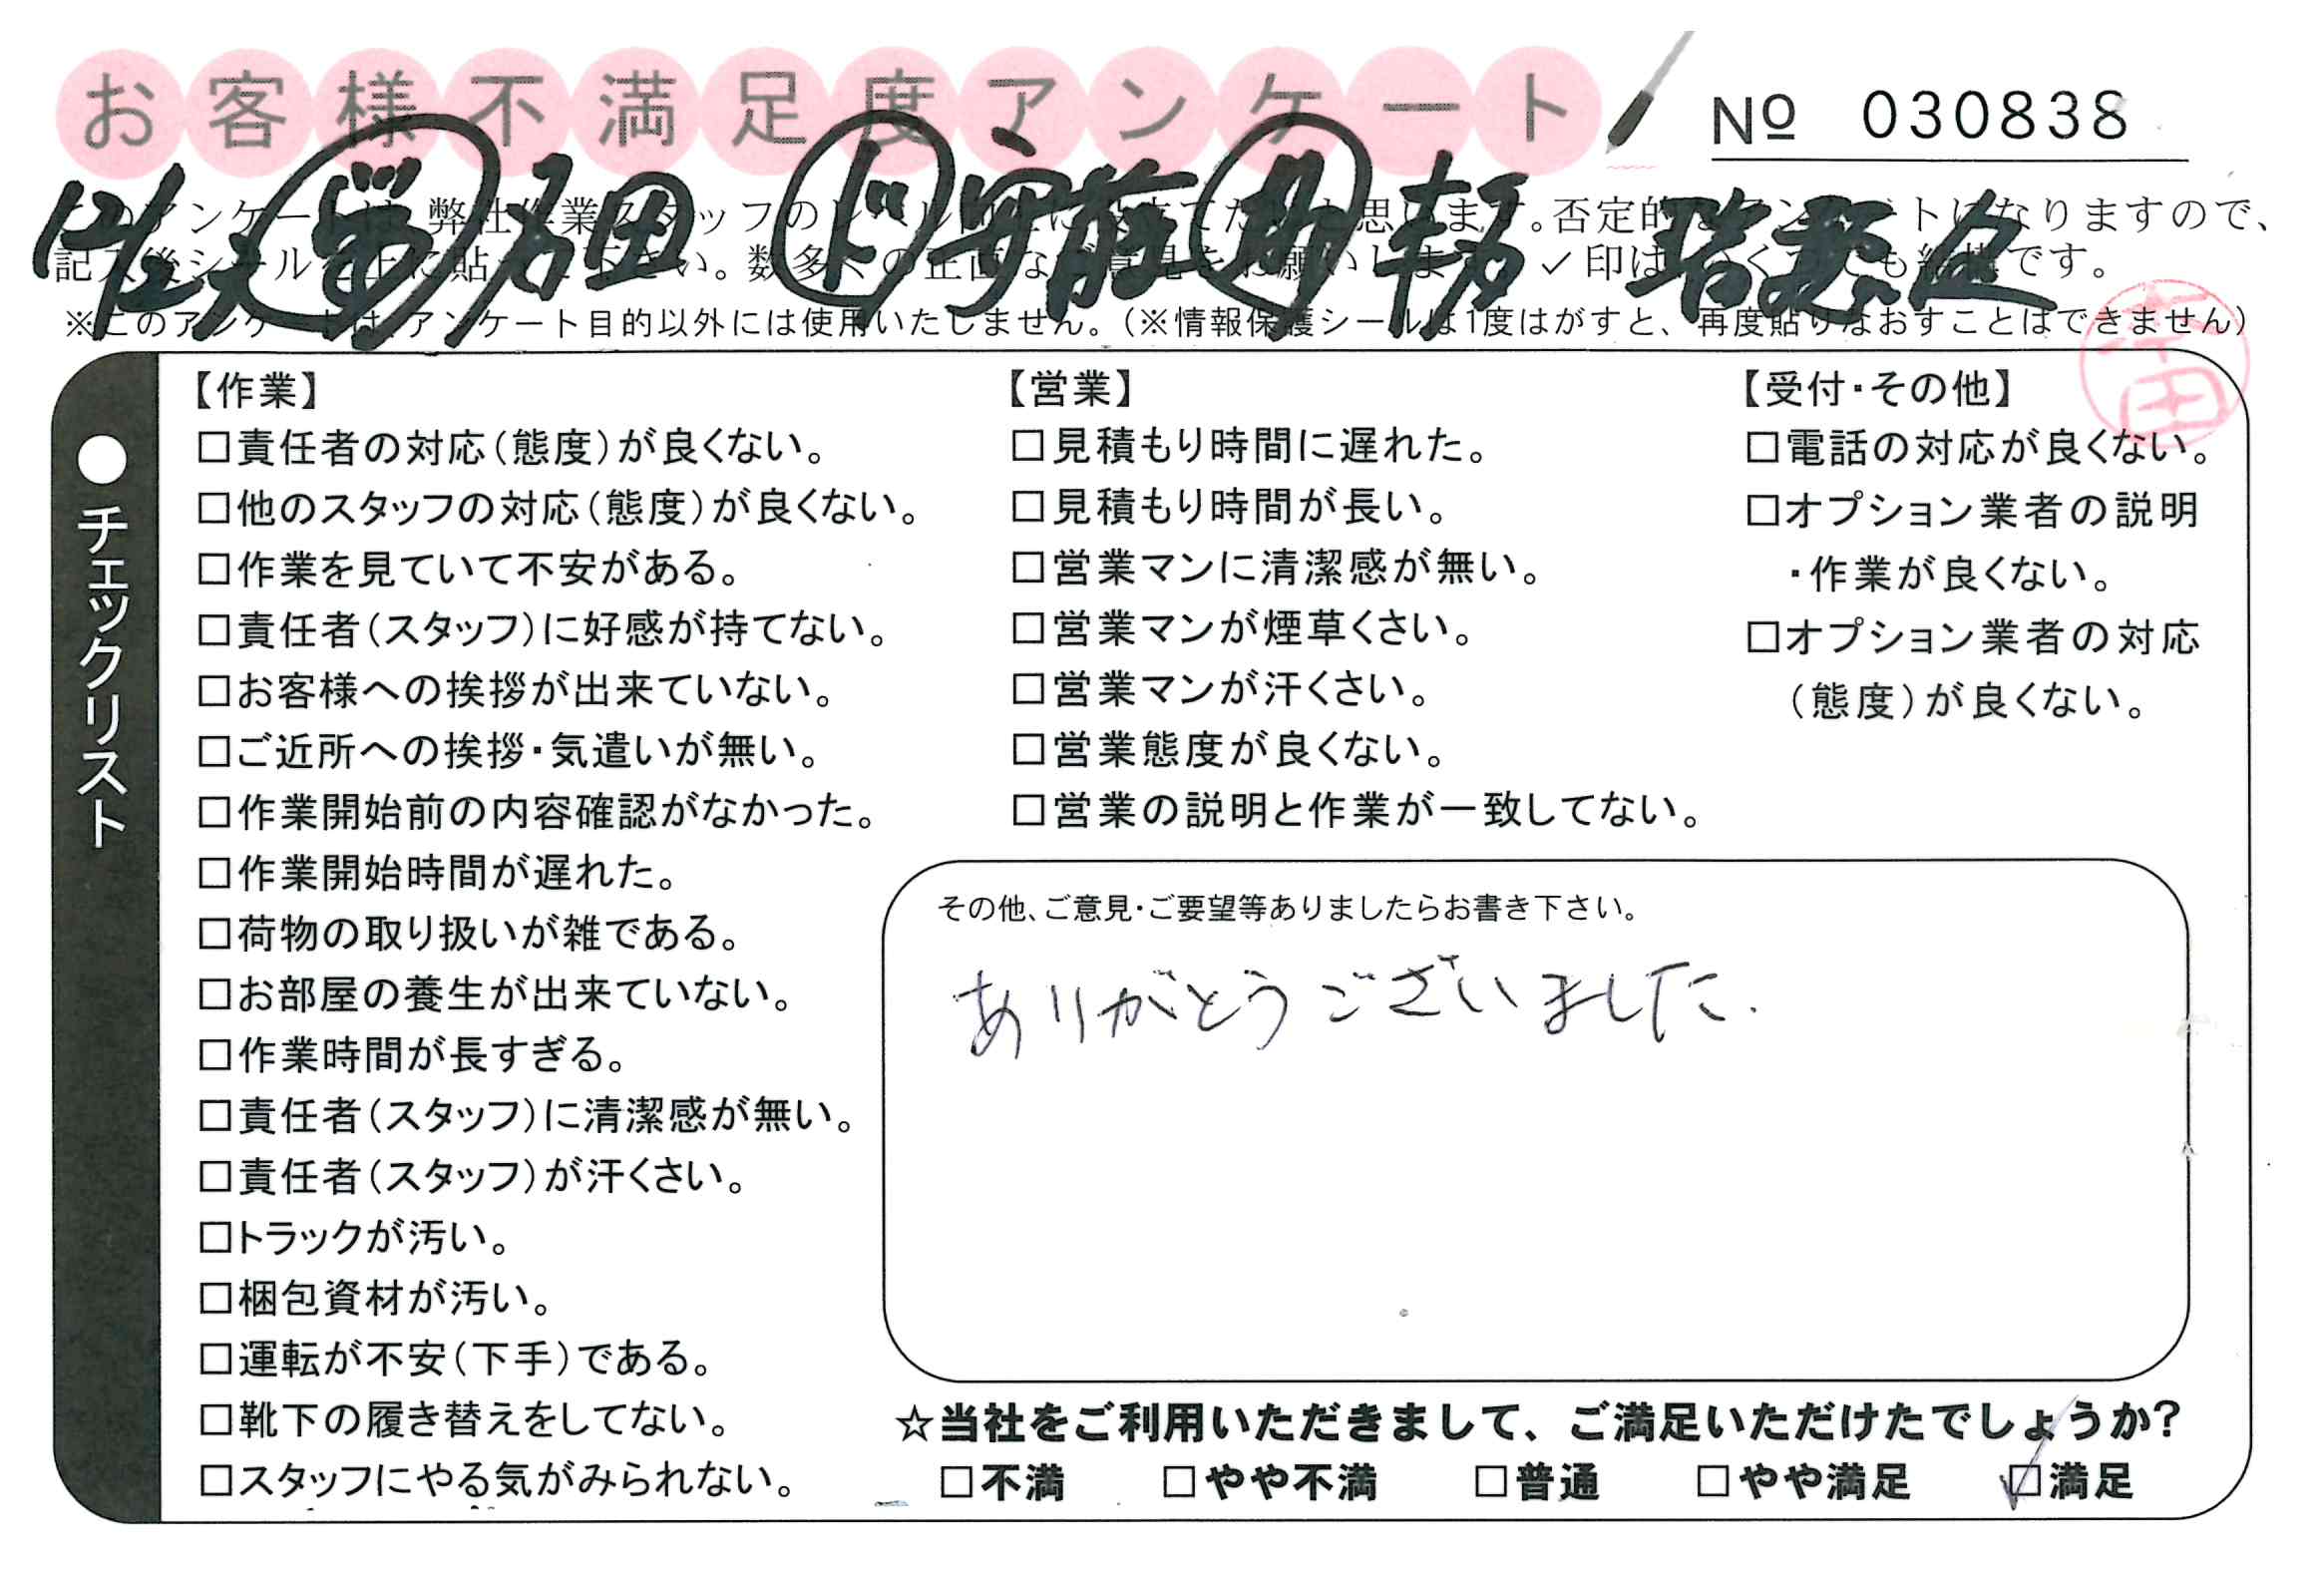 お客様不満足度アンケート
№ 030838
※このアンケートは、アンケート目的以外には使用いたしません。（※情報保護シールは1度はがすと、再度貼りなおすことはできません）
●チェックリスト
【作業】
□責任者の対応（態度）が良くない。
□他のスタッフの対応（態度）が良くない。
□作業を見ていて不安がある。
□責任者（スタッフ）に好感が持てない。
□お客様への挨拶が出来ていない。
□ご近所への挨拶・気遣いが無い。
□作業開始前の内容確認がなかった。
□作業開始時間が遅れた。
□荷物の取り扱いが雑である。
□お部屋の養生が出来ていない。
□作業時間が長すぎる。
□責任者（スタッフ）に清潔感が無い。
□責任者（スタッフ）が汗くさい。
□トラックが汚い。
□梱包資材が汚い。
□運転が不安（下手）である。
□靴下の履き替えをしてない。
□スタッフにやる気がみられない。
【営業】
□見積もり時間に遅れた。
□見積もり時間が長い。
□営業マンに清潔感が無い。
□営業マンが煙草くさい。
□営業マンが汗くさい。
□営業態度が良くない。
□営業の説明と作業が一致してない。
【受付・その他】
□電話の対応が良くない。
□オプション業者の説明
・作業が良くない。
□オプション業者の対応
（態度）が良くない。
その他、ご意見・ご要望等ありましたらお書き下さい。
ありがとうございました.
☆当社をご利用いただきまして、ご満足いただけたでしょうか？
□不満 □やや不満 □普通 □やや満足 ☑満足